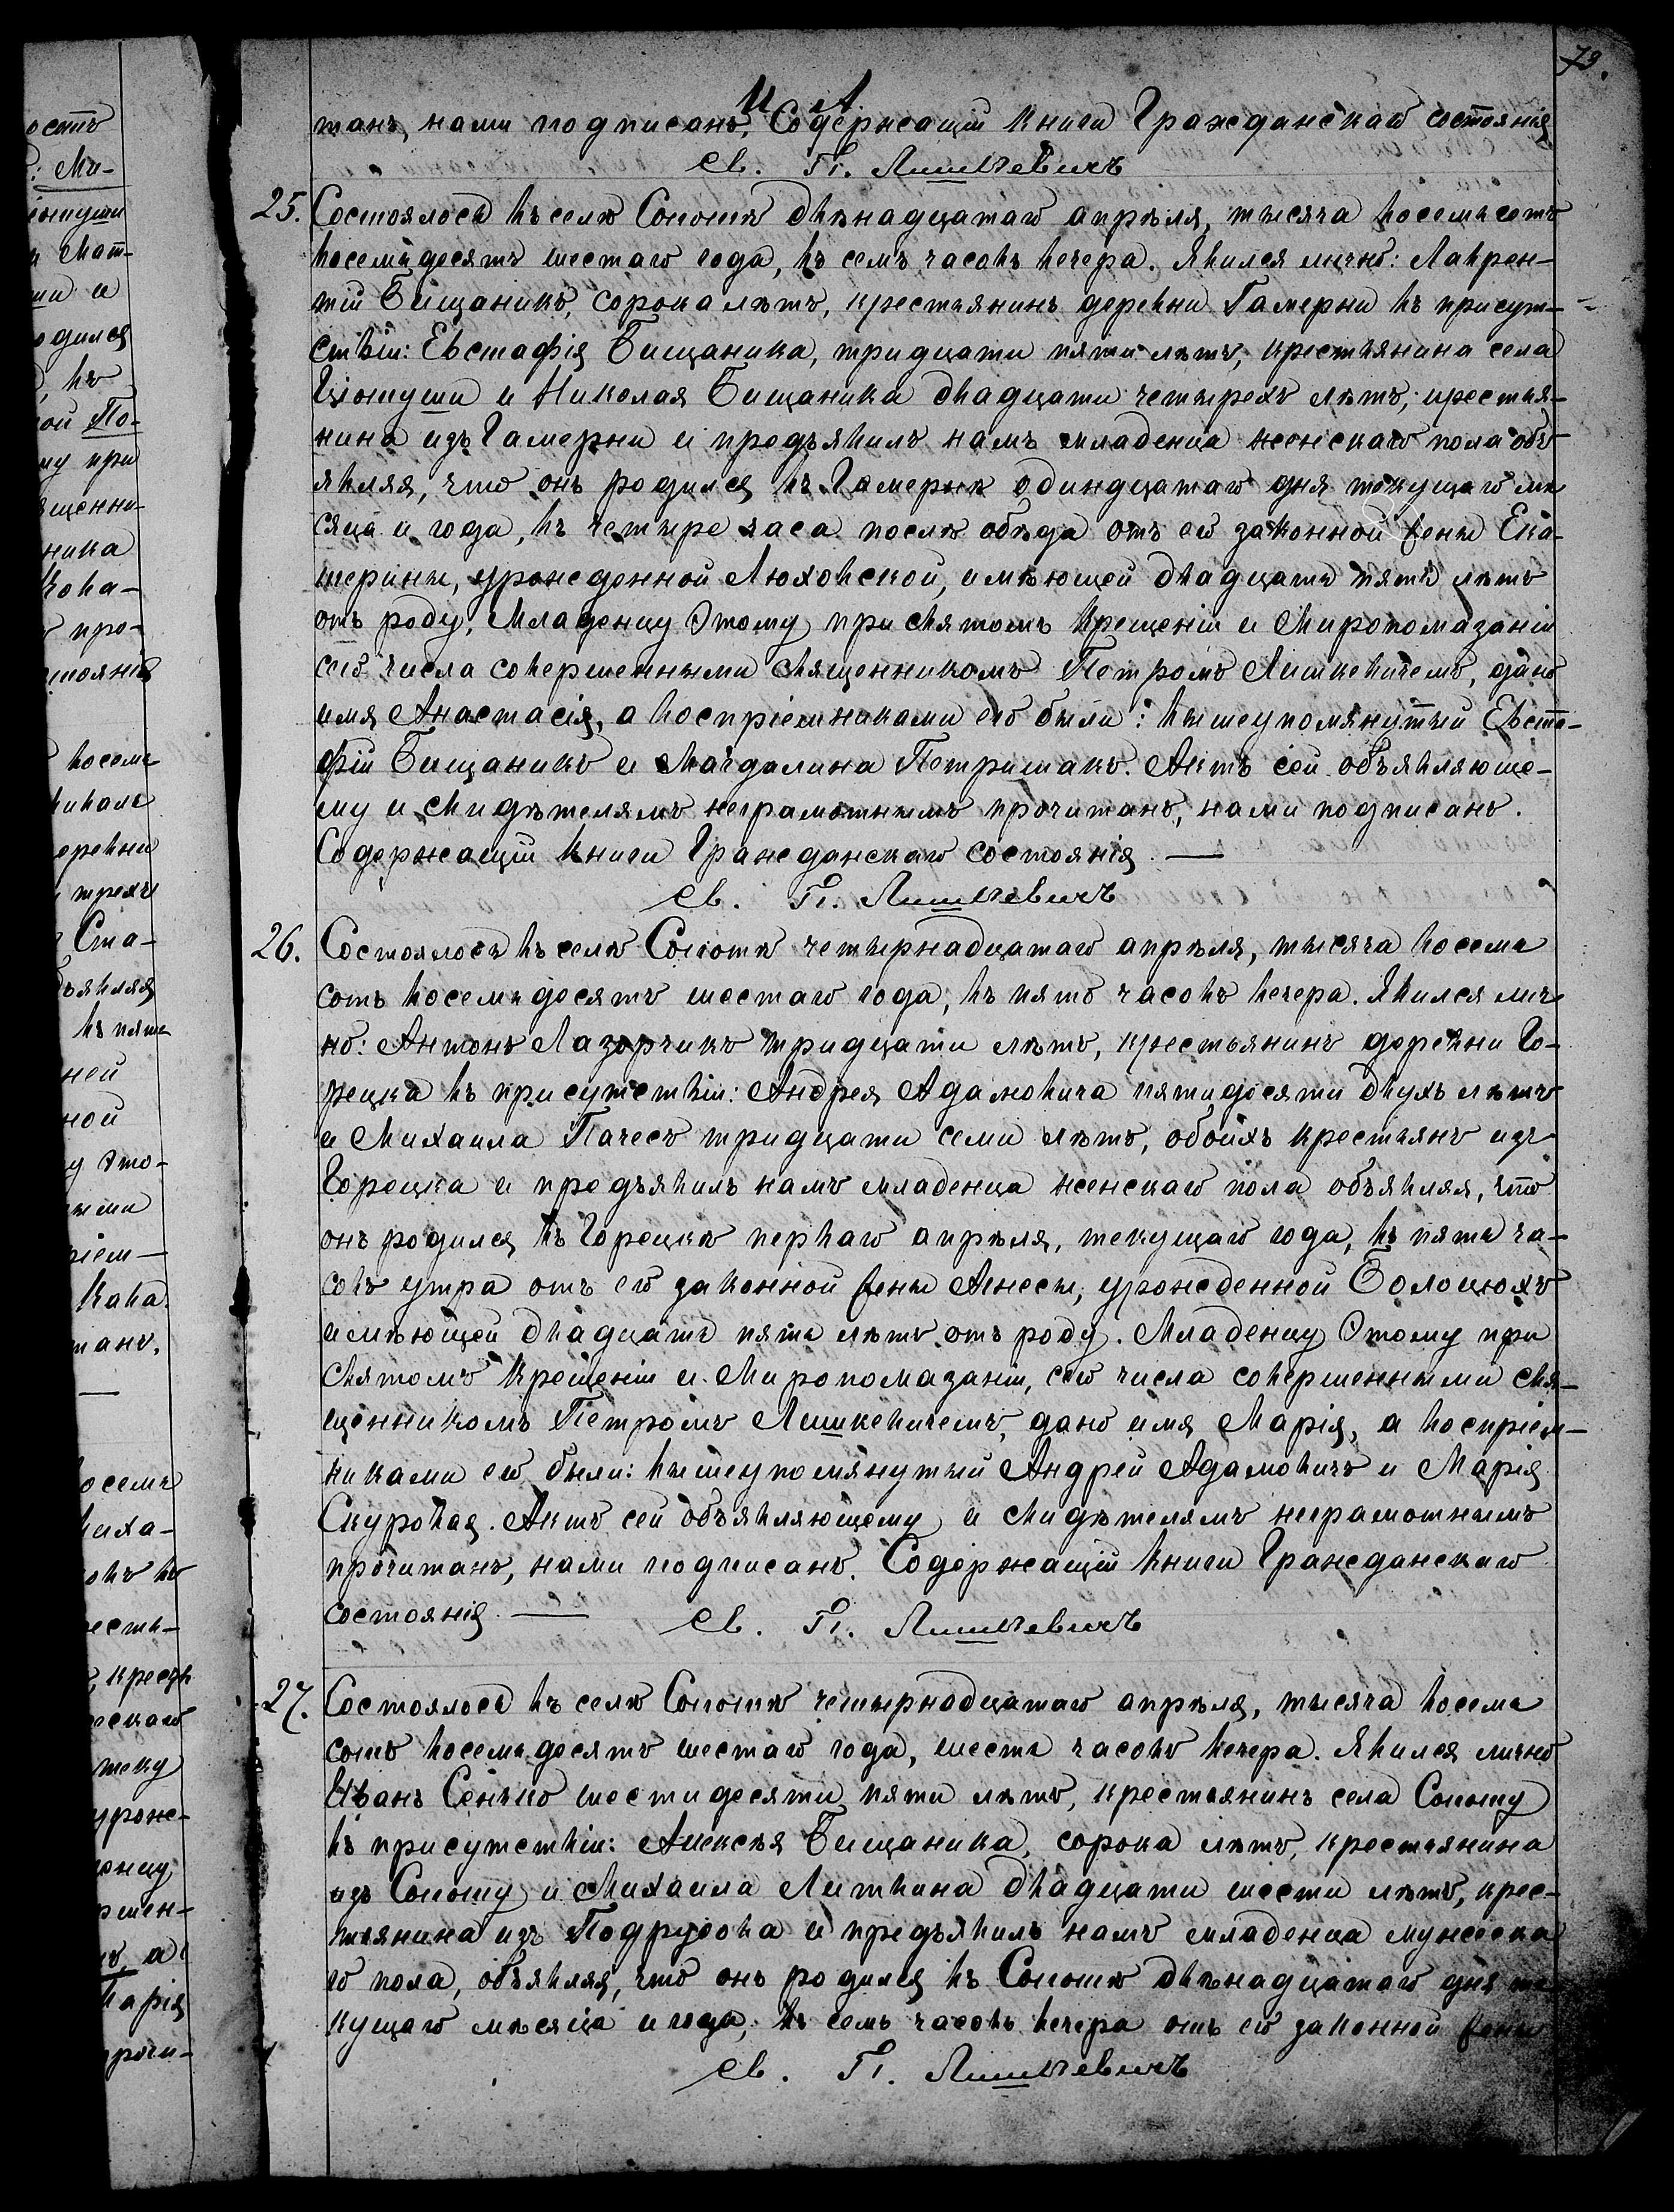 79.
И А.
танъ, нами подписанъ. Содержащій книги Гражданскаго состоянія
Св. П. Лишкевичъ
25. Состоялось въ селѣ Сопотѣ двѣнадцатаго апрѣля, тысяча восемьсотъ
восемьдесятъ шестаго года, въ семь часовъ вечера. Явился лично: Лаврен-
тій Бищаникъ, сорока лѣтъ, крестьянинъ деревни Гамерни въ присут-
ствіи: Евстафія Бищаника, тридцати пяти лѣтъ, крестьянина села
и Николая Бищаника двадцати четырехъ лѣтъ, крестья-
нина изъ Гамерни и предъявилъ намъ младенца женскаго пола объ-
являя, что онъ родился въ Гамернѣ одинадцатаго дня текущаго мѣ
сяца и года, въ четыре часа послѣ обѣда отъ его законной жены Ека-
терины, урожденной Люховской, имѣющей двадцать пять лѣтъ
отъ роду. Младенцу этому при святомъ крещеніи и Миропомазаніи
сего числа совершенными священникомъ Петромъ Лишкевичемъ, дано
имя Анастасія, а воспріемниками его были: вышеупомянутый Евста-
фій Бищаникъ и Магдалина Петришакъ. Актъ сей объявляюще-
му и свидѣтелямъ неграмотнымъ прочитанъ, нами подписанъ.
Содержащій книги Гражданскаго состоянія. —
Св. П. Лишкевичъ
26. Состоялось въ селѣ Сопотѣ четырнадцатаго апрѣля, тысяча восемь
сотъ восемьдесятъ шестаго года, въ пять часовъ вечера. Явился лич
но: Антонъ Лазорчикъ тридцати лѣтъ, крестьянинъ деревни Го-
рецка въ присутствіи: Андрея Адамовича пятидесяти двухъ лѣтъ
и Михаила Пачесъ тридцати семи лѣтъ, обоихъ крестьянъ изъ
Горецка и предъявилъ намъ младенца женскаго пола объявляя, что
онъ родился въ Горецкѣ перваго апрѣля, текущаго года, въ пять ча-
совъ утра отъ его законной жены Агнесы, урожденной Болоцюхъ
имѣющей двадцать пять лѣтъ отъ роду. Младенцу этому при
святомъ крещеніи и Миропомазаніи, сего числа совершенными свя-
щенникомъ Петромъ Лишкевичемъ, дано имя Марія, а воспріем-
никами его были: вышеупомянутый Андрей Адамовичъ и Марія
Скуровая. Актъ сей объявляющему и свидѣтелямъ неграмотнымъ
прочитанъ, нами подписанъ. Содержащій книги Гражданскаго
состоянія. — Св. П. Лишкевичъ
27. Состоялось въ селѣ Сопотѣ четырнадцатаго апрѣля, тысяча восемь
сотъ восемьдесятъ шестаго года, шесть часовъ вечера. Явился лично
Иванъ Сенько шестидесяти пяти лѣтъ, крестьянинъ села Сопоту
въ присутствіи: Алексѣя Бищаника, сорока лѣтъ, крестьянина
изъ Сопоту и Михаила Литвина двадцати шести лѣтъ, крес-
тьянина изъ Подрусова и предъявилъ намъ младенца мужеска
го пола, объявляя, что онъ родился въ Сопотѣ двѣнадцатаго дня те
кущаго мѣсяца и года, въ семь часовъ вечера отъ его законной жены
Св. П. Лишкевичъ